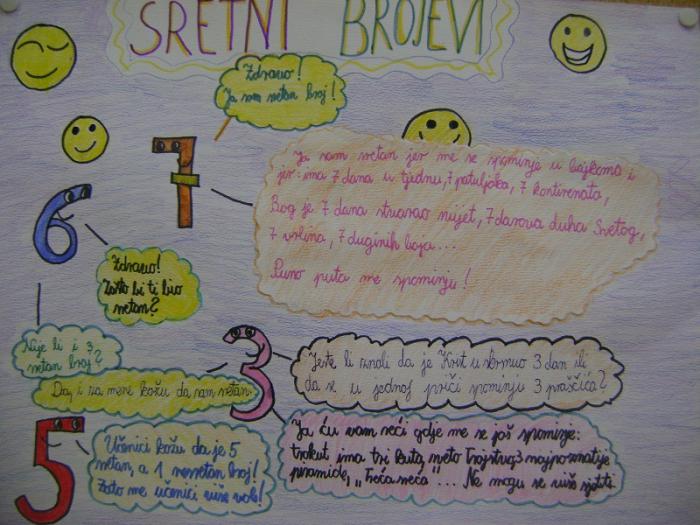 SRETNI BROJEVI
Zdravo!
Ja sam sretan broj!
Ja sam sretan jer me se spominje u bajkama i
jer: ima 7 dana u tjednu, 7 patuljaka, 7 kontinenata,
Bog je 7 dana stvarao svijet, 7 darova duha Svetog,
7 vrlina, 7 duginih boja...
Puno puta me spominju!
Zdravo!
Zašto bi ti bio
sretan?
Nije li i 3
sretan broj?
Daj i za mene kažu da sam sretan.
Jeste li znali da je Krist uskrsnuo 3 dan ili
da se u jednoj priči spominju 3 praščića?
Učenici kažu da je 5
sretan, a 1 nesretan broj!
Zato me učenici više vole!
Ja ću vam reći gdje me se još spominje:
trokut ima tri kuta, sveto Trojstvo, 3 najpoznatije
piramide, "Treća sreća"... Ne mogu se više sjetiti.